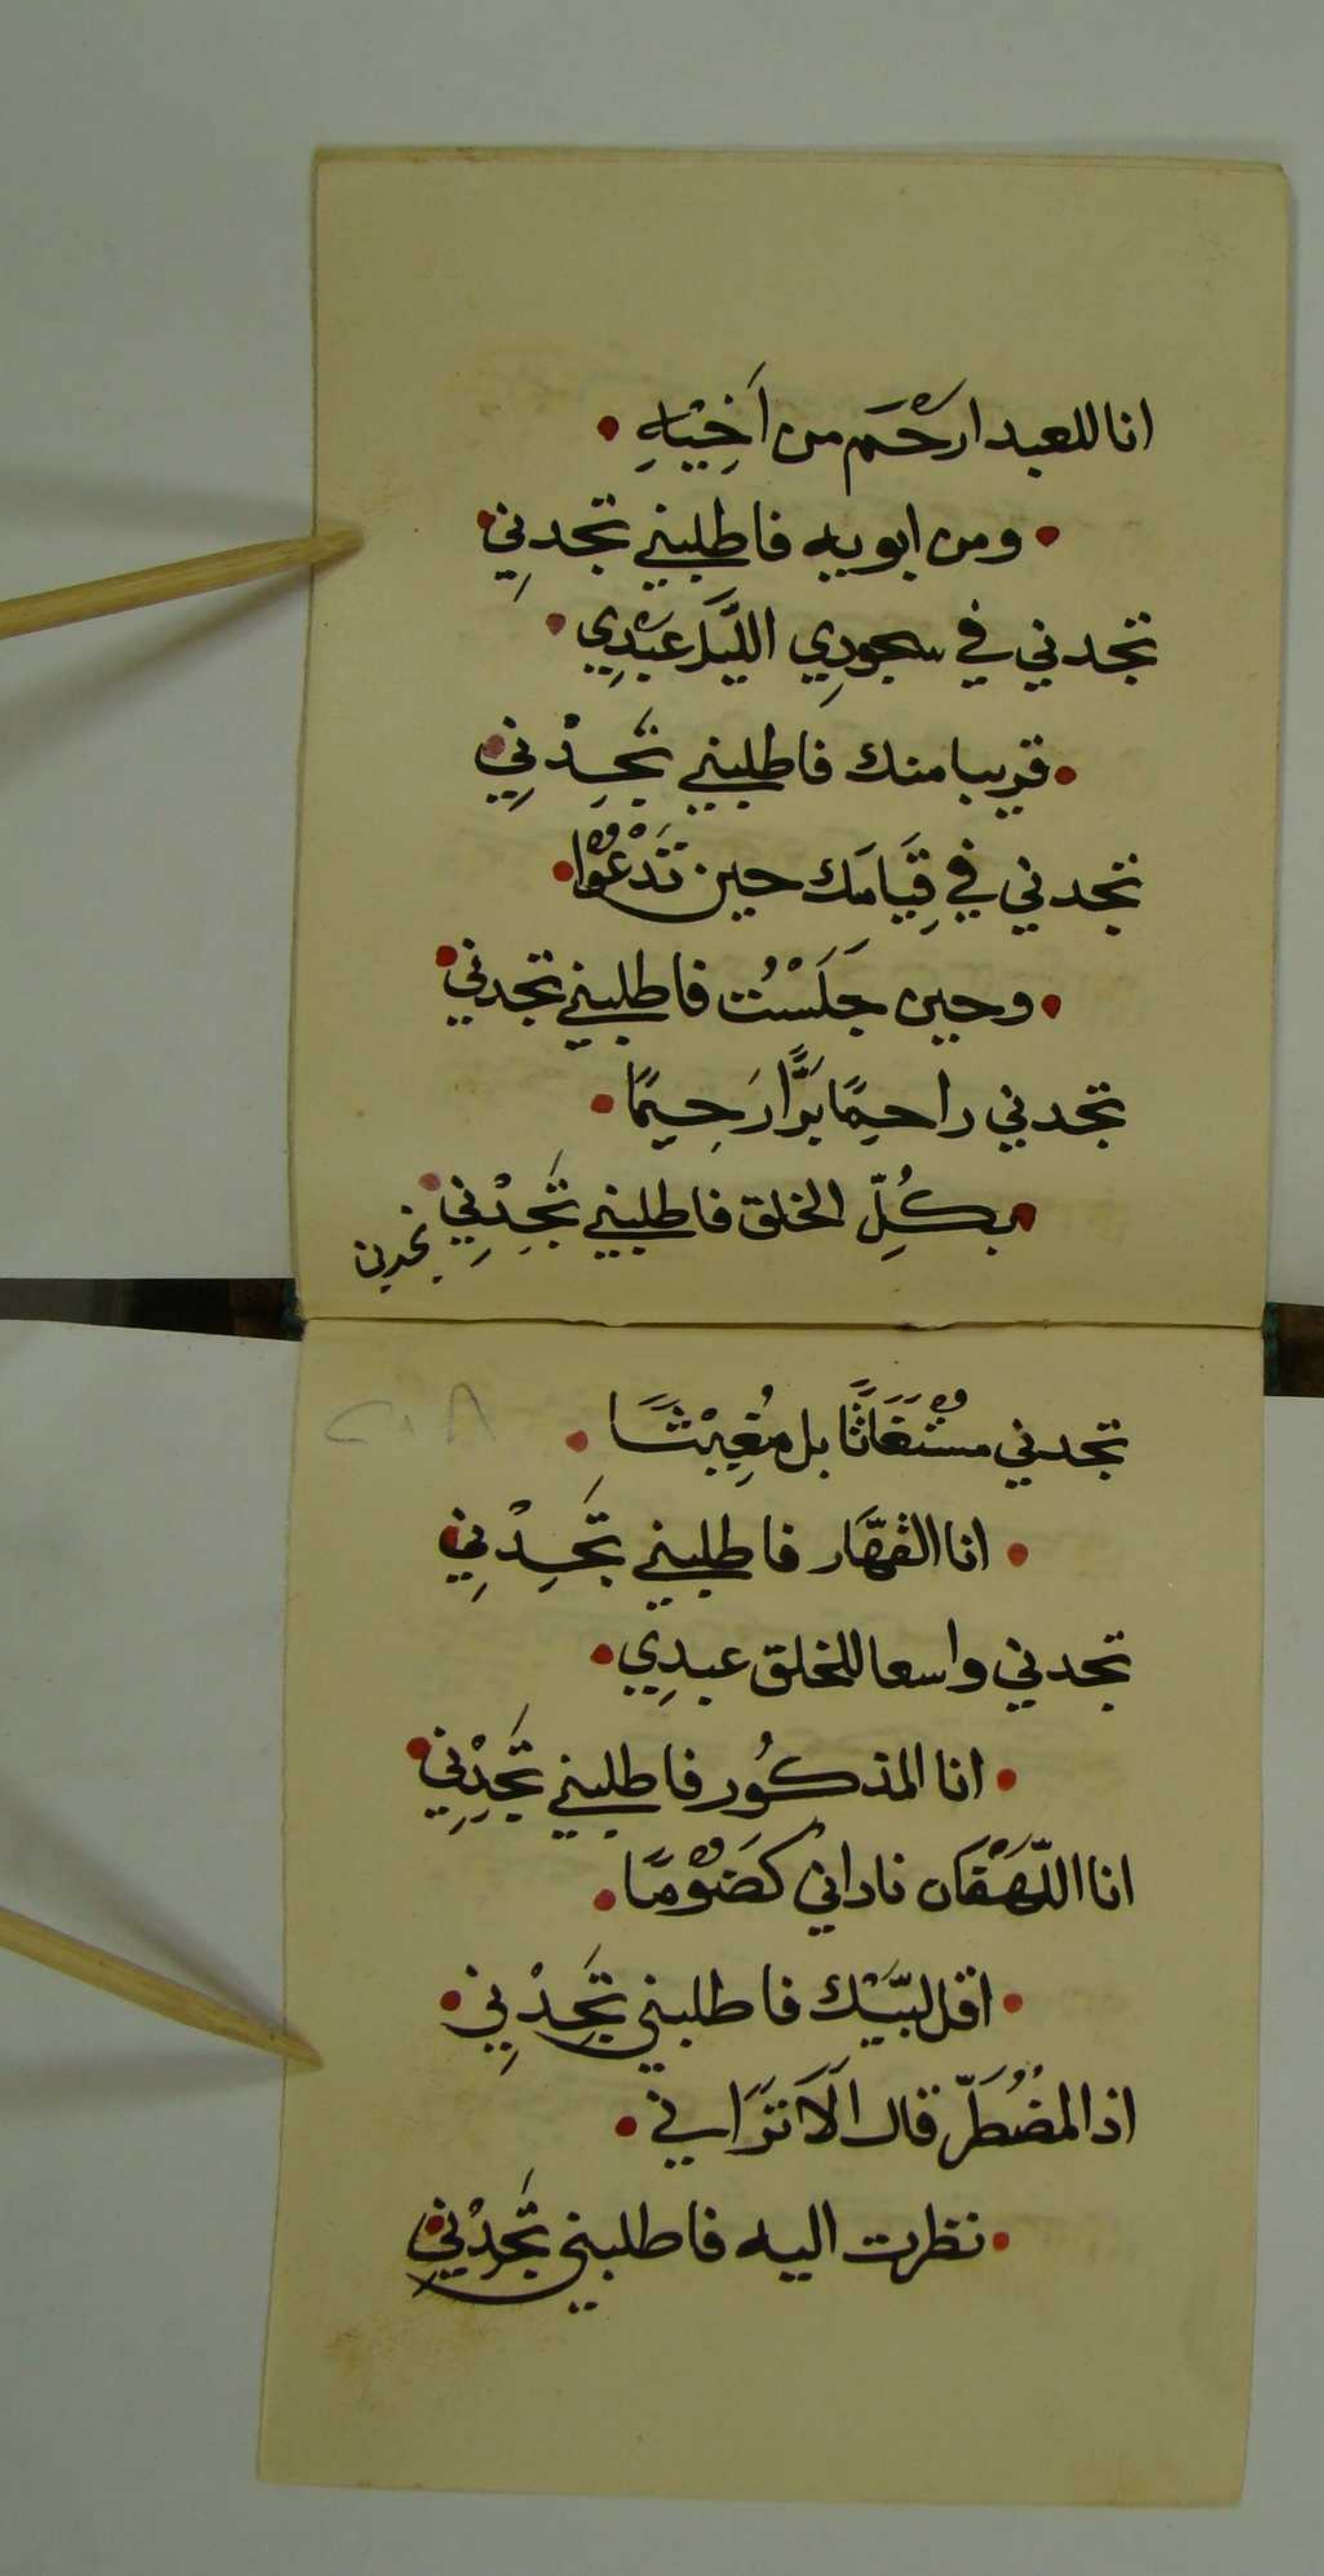 انا للعبد ارْحَم من اَخِيْهِ •
• ومن ابويه فاطلبني تجدنِي •
تجدني في سجودِي اللَّيل عَبْدِي •
• قريبا منك فاطلبني تَجِدْنِي •
تجدني في قِيَامَك حين تَدْعُوْا •
• وحين جَلَسْتُ فاطلبني تجدني •
تجدني راحِمًا بَرًّا رَحِيمًا •
• بكُلِّ الخلق فاطلبني تَجِدْنِي •
تجدني
تجدني مسْتَغَاثًا بل مُغِيْثًا •
٢٠٨
• انا القهَّار فاطلبني تَجِدْنِي
تجدني واسعا للخلق عبدِي •
• انا المذكُور فاطلبني تَجِدْنِي •
انا اللَّهْفَان ناداني كَضُوْمًا •
• اقل لبَّيْك فاطلبني تَجِدْنِي •
اذا المضْطَرُّ قال اَلَا تَرَانِي •
• نظرت اليه فاطلبني تَجِدْنِي